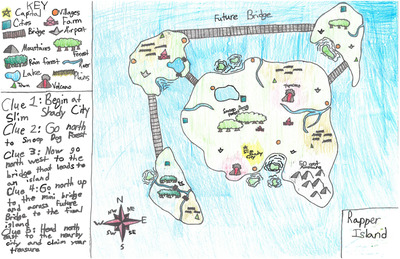 KEY
Capital
Villages
Cities
Farm
Bridge
Airport
Mountains
Forest
Rain forest
River
Lake
Plains
Dam
Volcano
Clue 1: Begin at
Slim Shady City
Clue 2: Go north
to Snoop Dog Forest
Clue 3: Now go
north west to the
bridge that leads to
an island
Clue 4: Go north up
to the mini bridge
and across Future
Bridge to the final
island
Clue 5: Head north
east to the nearby
city and claim your
treasure
Future Bridge
Snoop Dog
Forest
Slim
Shady
City
50 cent
N
NE
E
SE
S
SW
W
NW
Rapper
Island